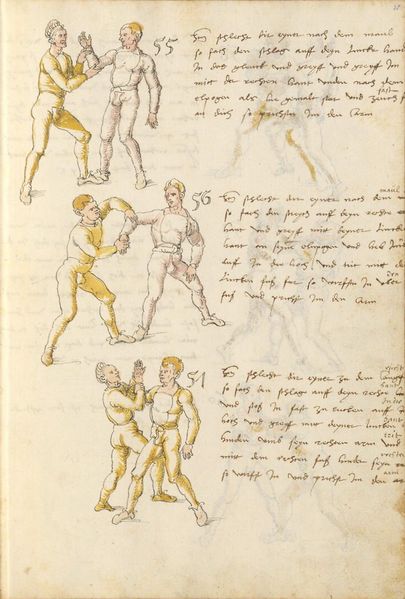 55
schlecht dir eyner nach dem maul
so fach den schlag auff deyn lincke hand
In das glenck und greyff und greyff im
mitt der rechten hant unden nach dem
elpogen als hie gemalt stat und zeuch fast
an dich so prichstu im den arm
56
schlecht dir eyner nach dem maul
so fach den streych auff deyn rechte
hant und greyff mit deyner lincken
hant an seyn elpogen und heb im
auff in die hoch und trit mit dem
lincken fuß fur so wirffstu in uber
fuß und pricht im den arm
schlecht dir eyner zu dem
so fach den schlag auff deyn rechte hant
und stoß in fast zu rucken auff
hoch und greyff mit deyner lincken hant
hinden umb seyn rechten arm und trit
mit dem rechten fuß hinder seyn rechten
so wirff in und pricht im den arm